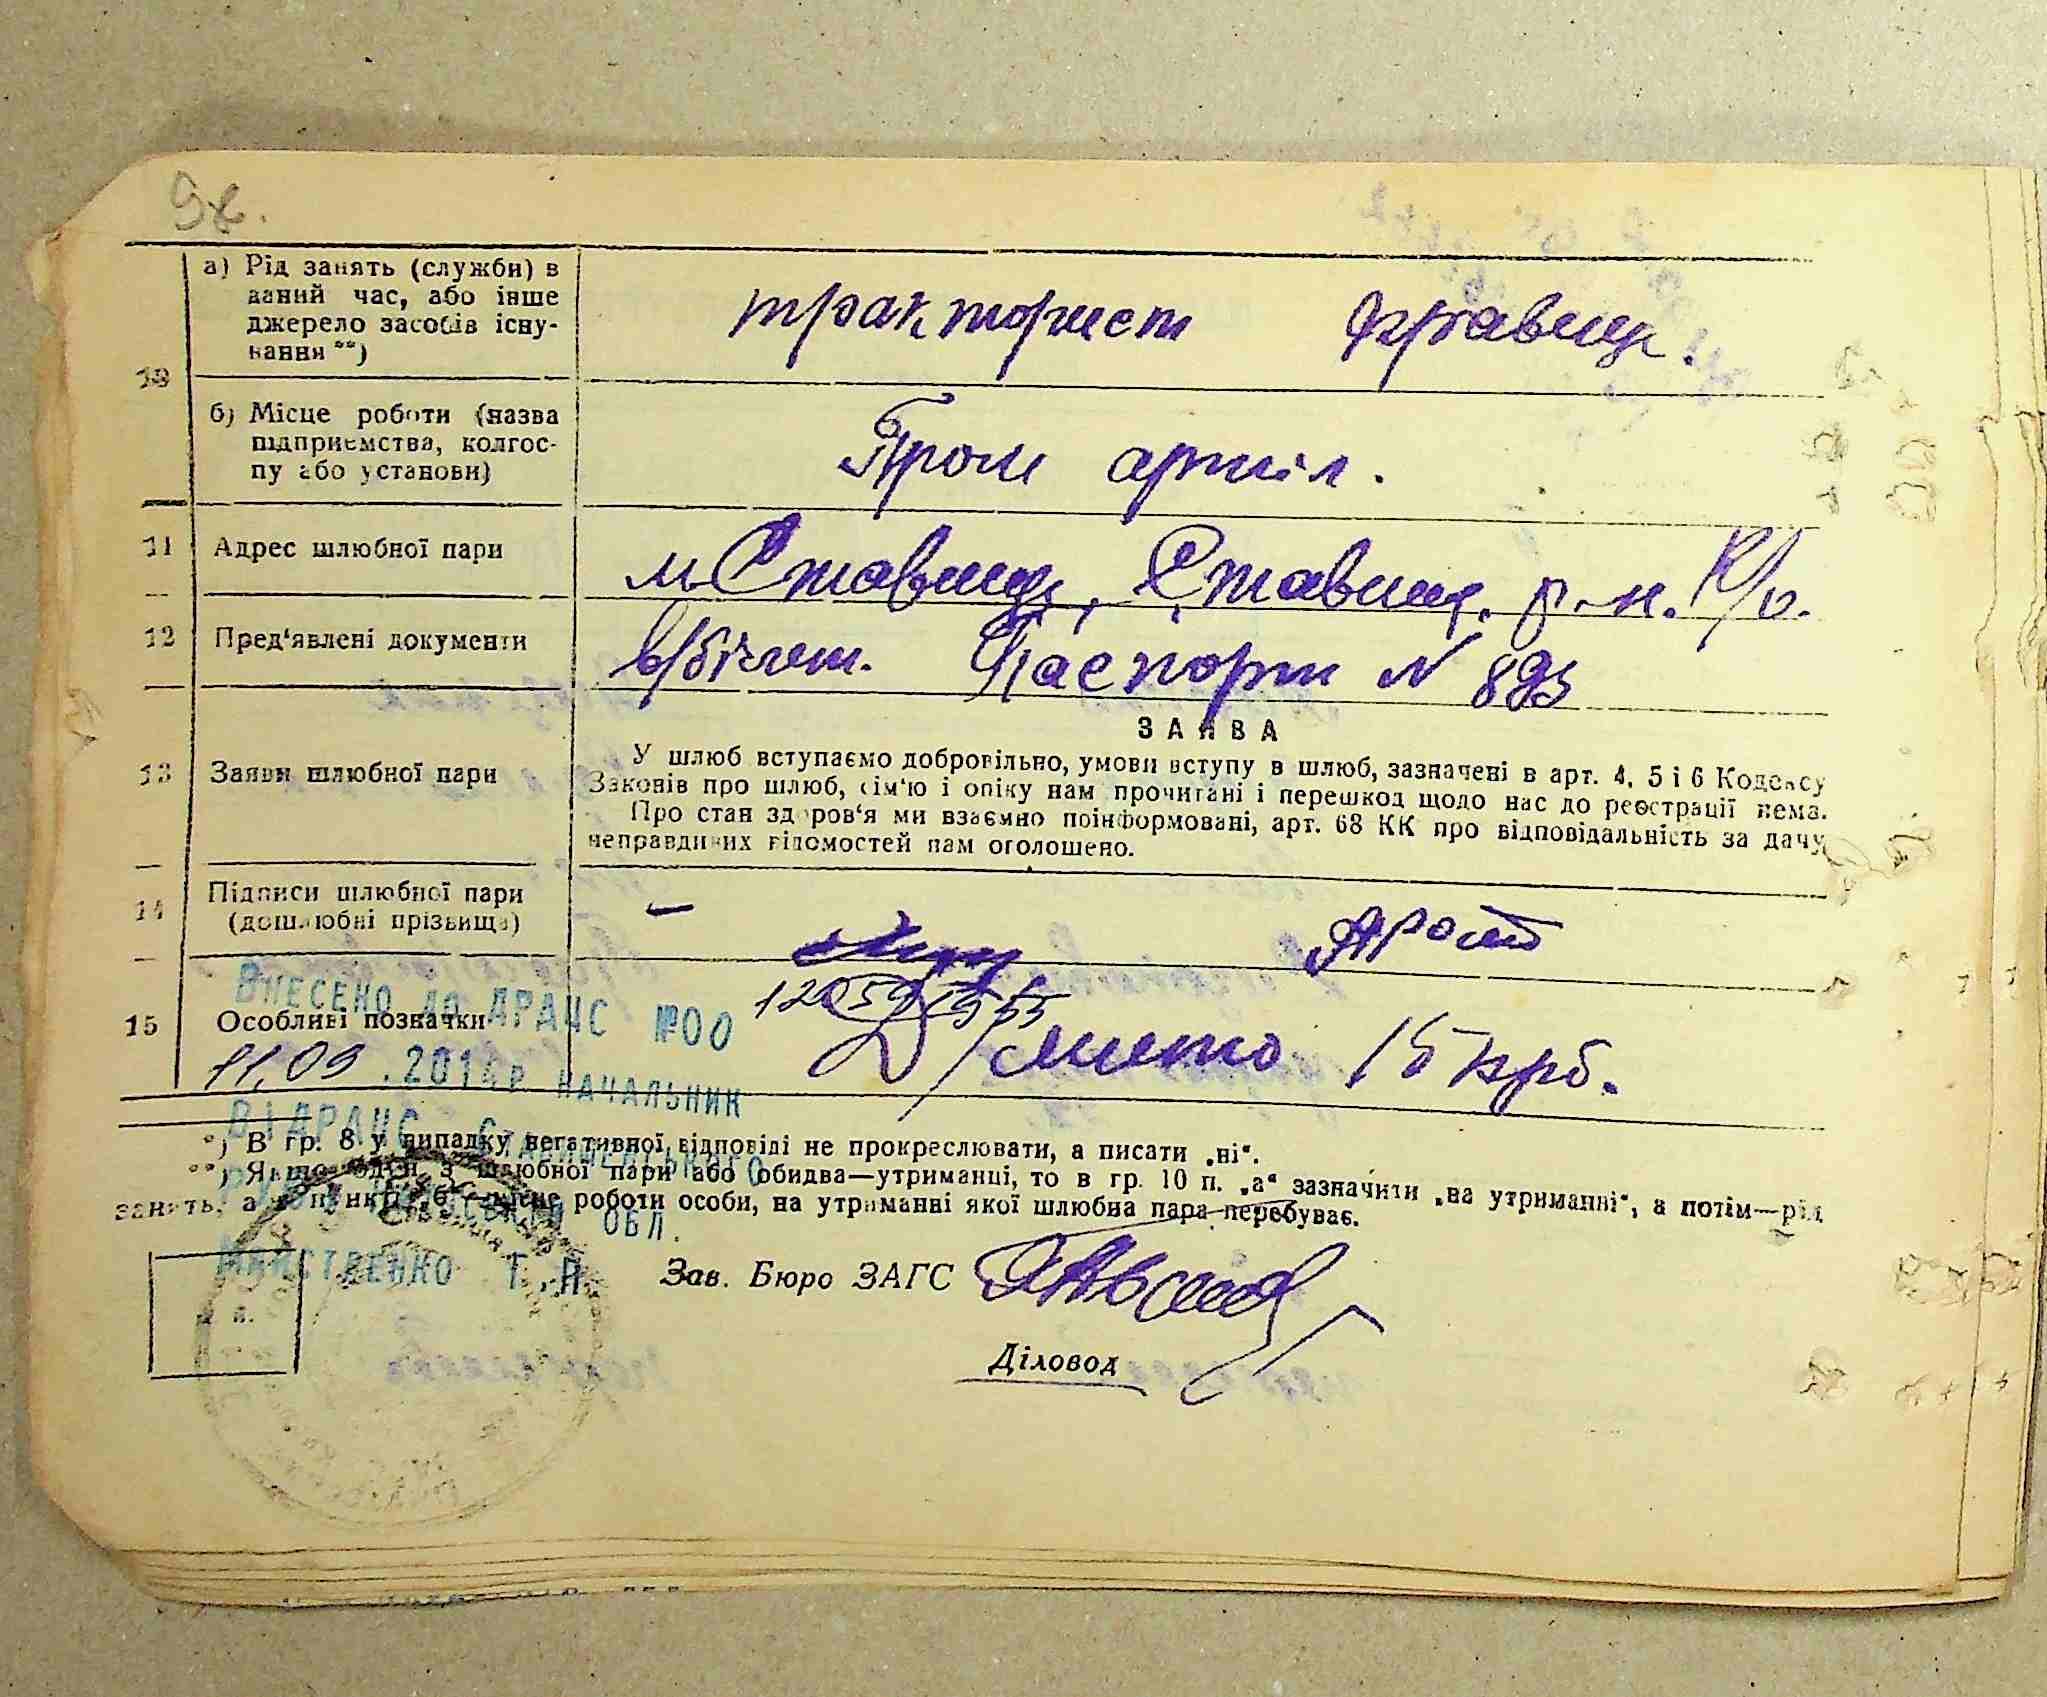 а) Рід занять (служби) в
даний час, або інше
джерело засобів існу-
вання **)
трактористь кравец.
10
б) Місце роботи (назва
підприємства, колгос-
пу або установи)
Пром артіл.
11 Адрес шлюбної пари
м Ставище, Ставищ. р-н. К/о.
12 Пред'явлені документи
в/білет. Паспорт N 893
ЗАЯВА
13 Заяви шлюбної пари
У шлюб вступаємо добровільно, умови вступу в шлюб, зазначені в арт. 4, 5 і 6 Кодексу
Законів про шлюб, сім'ю і опіку нам прочитані і перешкод щодо нас до реєстрації нема.
Про стан здоров'я ми взаємно поінформовані, арт. 68 КК про відповідальність за дачу
неправдивих відомостей нам оголошено.
14 Підписи шлюбної пари
(дошлюбні прізвища)
15 Особливі позначки
Д/мито 15 крб.
Внесено до ДРАЦС №00
11.09.2014р начальник
ВДРАЦС Ставищенського
обл.
Майстренко Т.П.
*) В гр. 8 у випадку негативної відповіді не прокреслювати, а писати „ні“.
**) Якщо один з шлюбної пари або обидва—утриманці, то в гр. 10 п. „а“ зазначити „на утриманні“, а потім—рід
занять, а в пункті „б“—місце роботи особи, на утриманні якої шлюбна пара перебуває.
Зав. Бюро ЗАГС
Діловод